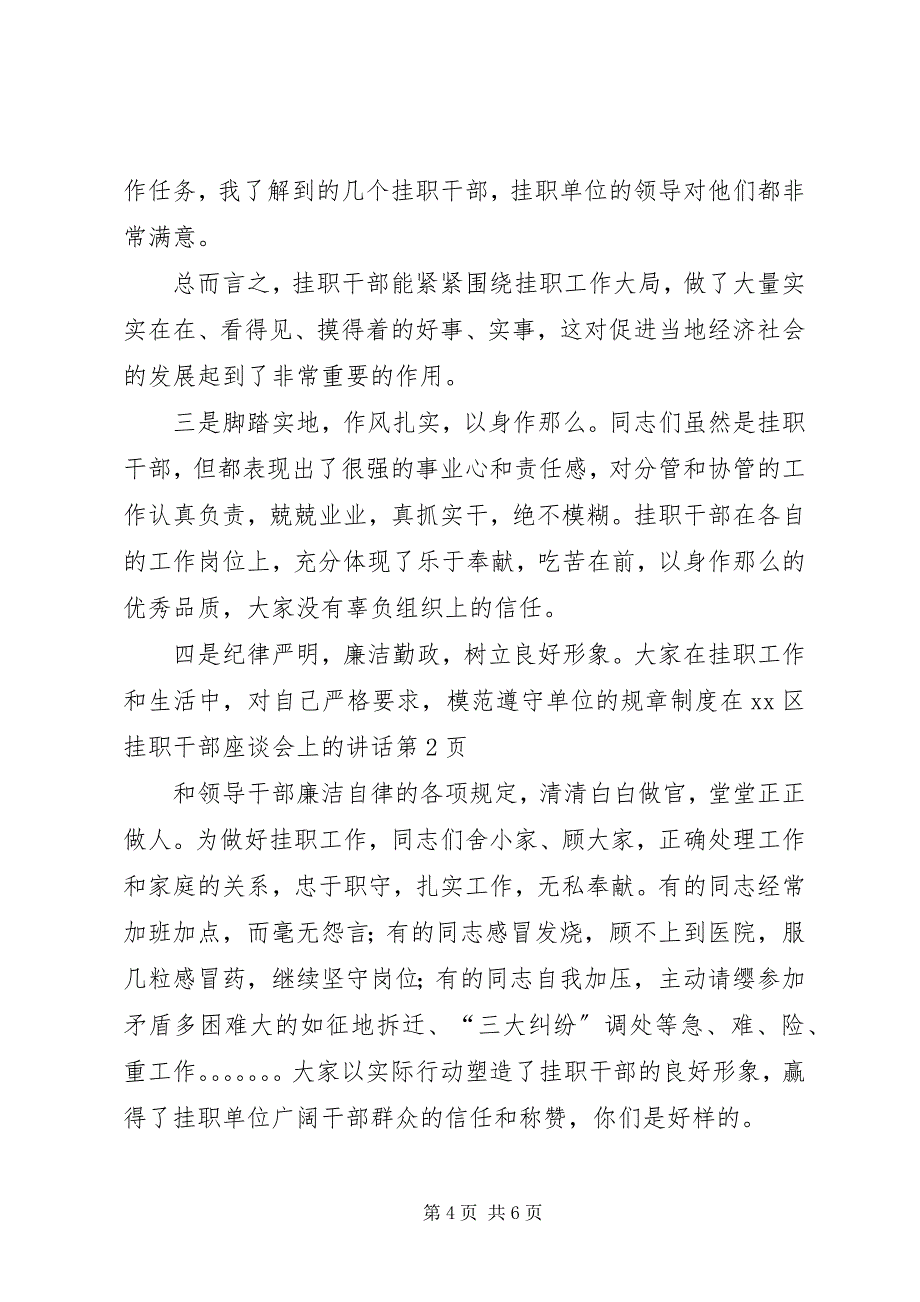 作任务，我了解到的几个挂职干部，挂职单位的领导对他们都非
常满意。
总而言之，挂职干部能紧紧围绕挂职工作大局，做了大量实
实在在、看得见、摸得着的好事、实事，这对促进当地经济社会
的发展起到了非常重要的作用。
三是脚踏实地，作风扎实，以身作那么。同志们虽然是挂职
干部，但都表现出了很强的事业心和责任感，对分管和协管的工
作认真负责，兢兢业业，真抓实干，绝不模糊。挂职干部在各自
的工作岗位上，充分体现了乐于奉献，吃苦在前，以身作那么的
优秀品质，大家没有辜负组织上的信任。
四是纪律严明，廉洁勤政，树立良好形象。大家在挂职工作
和生活中，对自己严格要求，模范遵守单位的规章制度在 xx 区
挂职干部座谈会上的讲话第 2 页
和领导干部廉洁自律的各项规定，清清白白做官，堂堂正正
做人。为做好挂职工作，同志们舍小家、顾大家，正确处理工作
和家庭的关系，忠于职守，扎实工作，无私奉献。有的同志经常
加班加点，而毫无怨言；有的同志感冒发烧，顾不上到医院，服
几粒感冒药，继续坚守岗位；有的同志自我加压，主动请缨参加
矛盾多困难大的如征地拆迁、“三大纠纷〞调处等急、难、险、
重工作。。。。。。。大家以实际行动塑造了挂职干部的良好形象，赢
得了挂职单位广阔干部群众的信任和称赞，你们是好样的。
第 4 页 共 6 页